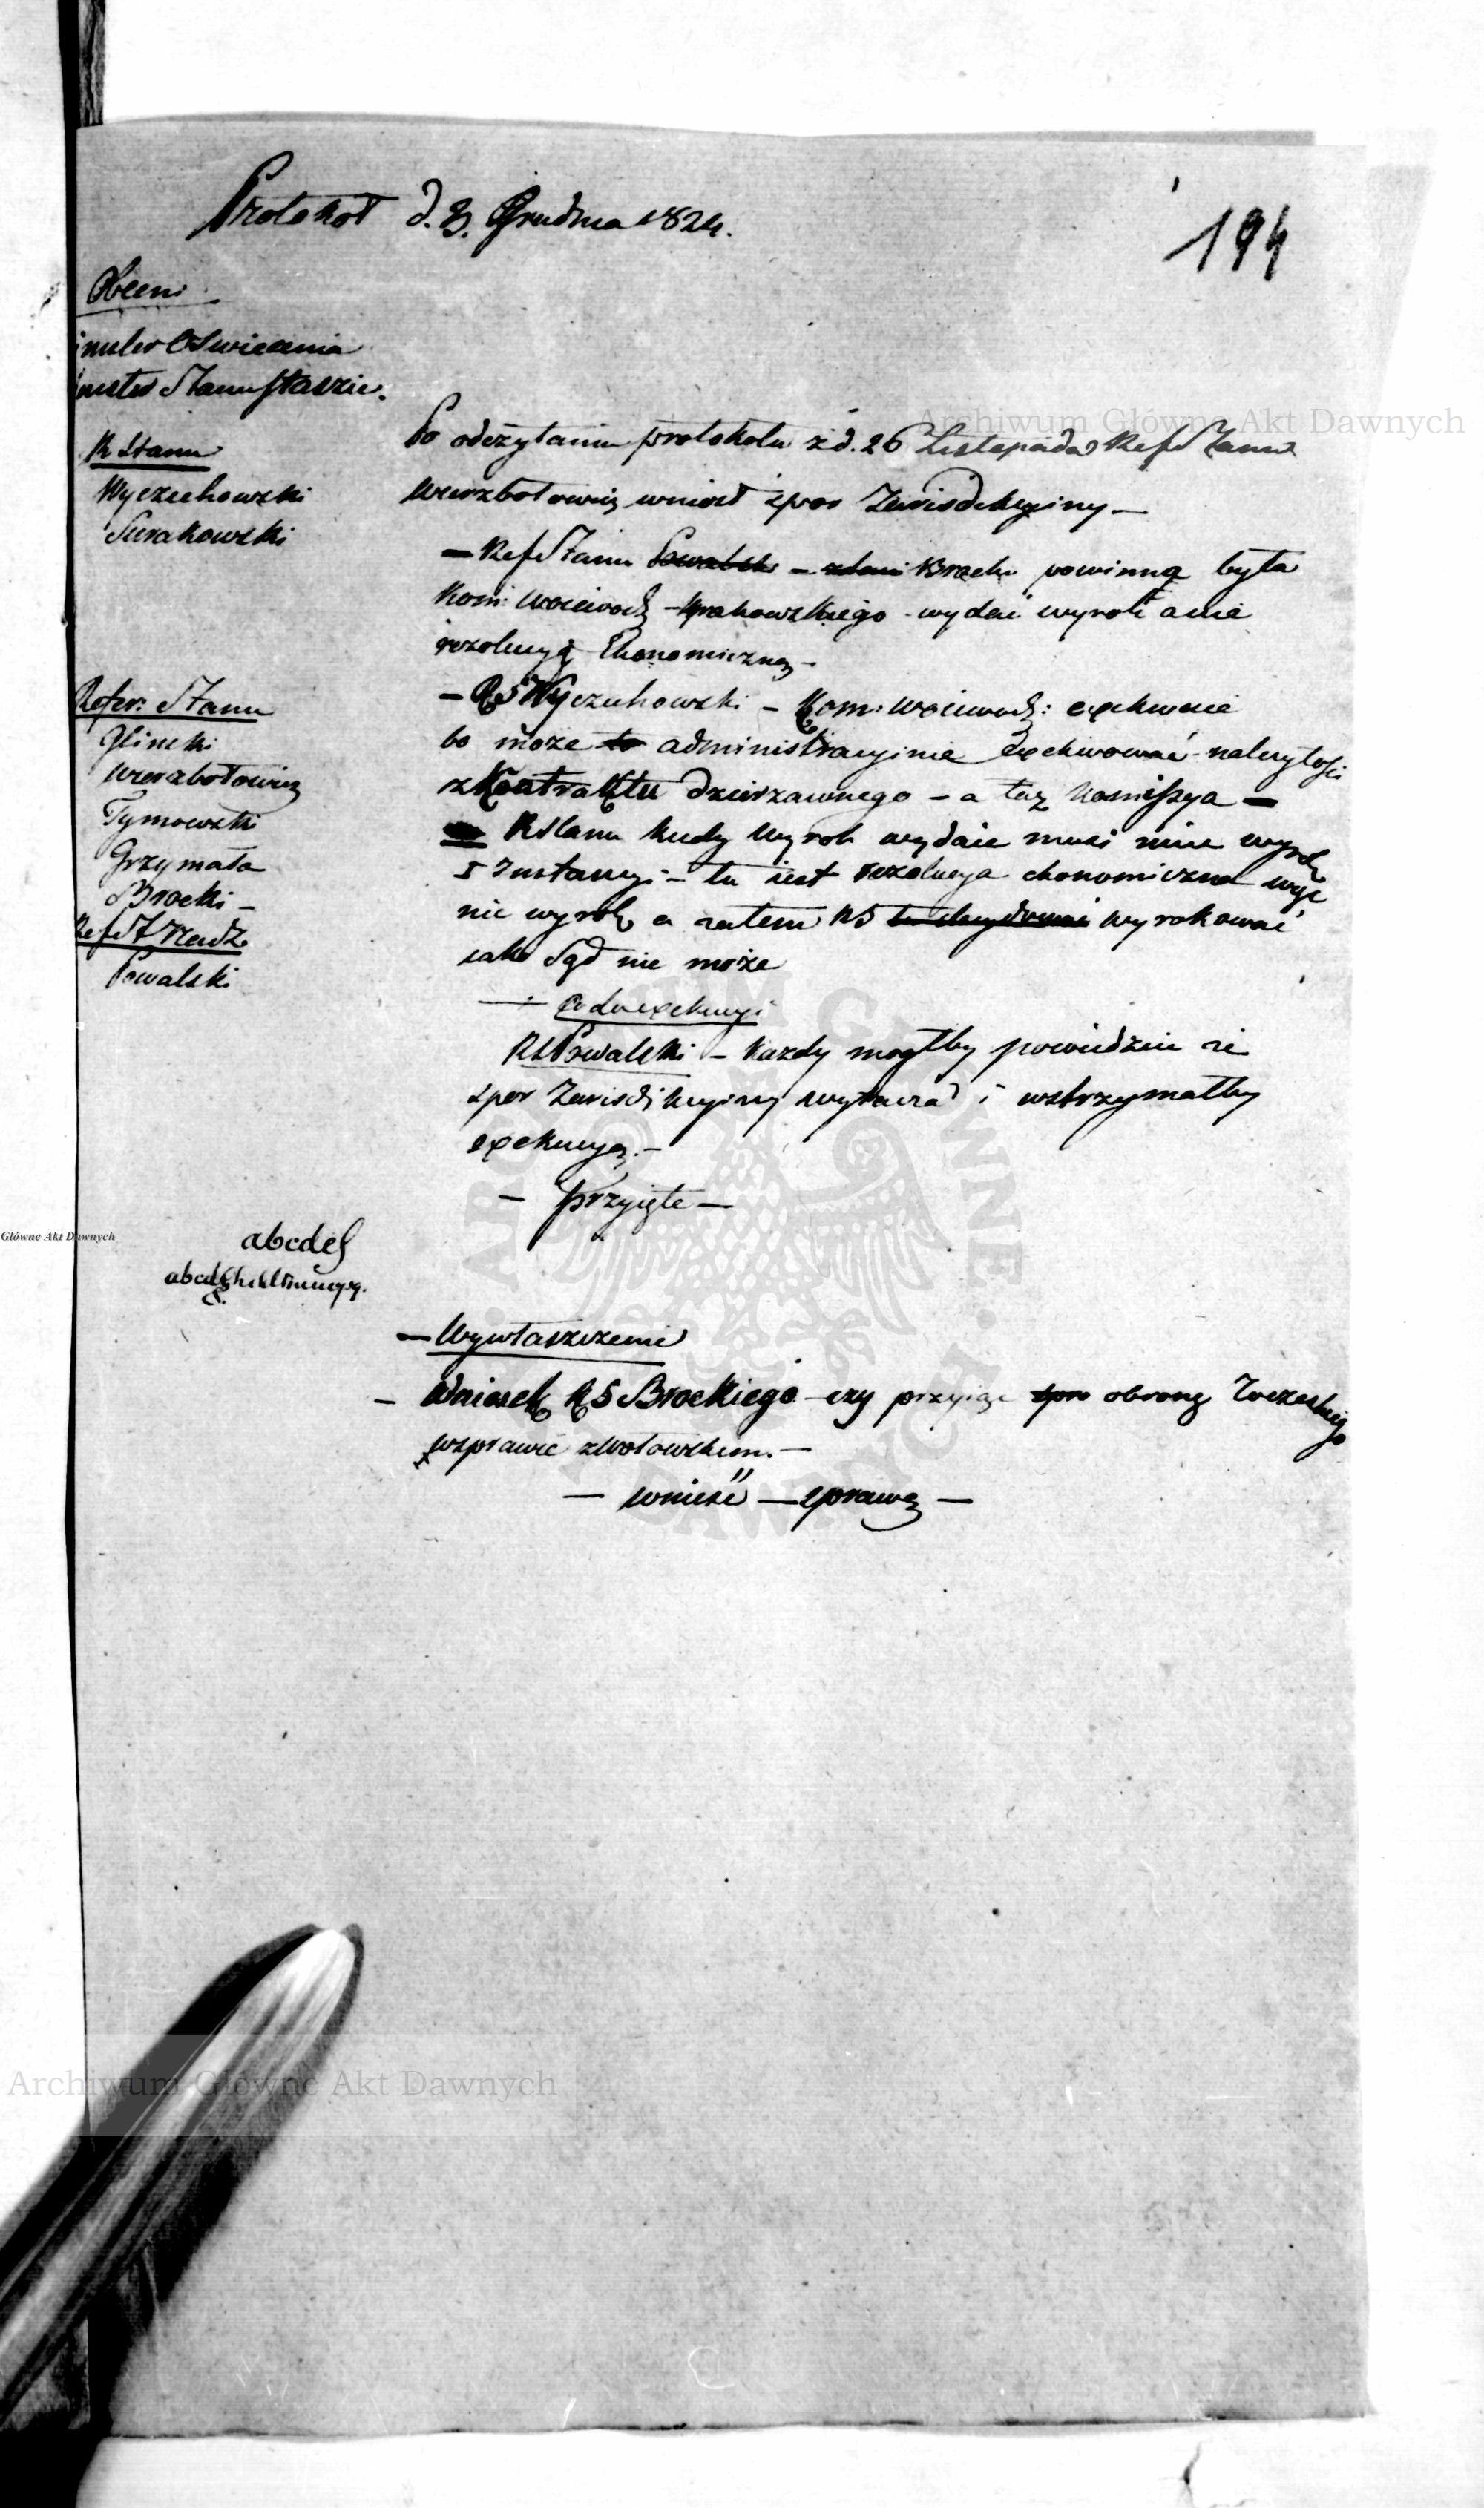 Protokoł d. 3. Grudnia 1824.
194
Obecni
inister Oswiecenia
inister Stanu Staszic.
R Stanu
Wyczechowski
Surakowski
Refer: Stanu
Glincki
Wierzbołowicz
Tymowski
Grzymała
Brocki –
Ref St Nadz
Kowalski
Po odczytaniu protokołu z d. 26 Listopada Ref Stanu
Wierzbołowicz wniosł spor Jurisdikcyiny –
– Ref Stanu – Brocki powinną była
Kom: Woiewodz – Krakowskiego – wydać wyrok a nie
rezolucyą Ekonomiczną –
– R S Wyczechowski – Kom: Woiewodz: exekwuie
bo może to administracyinie Exekwować należytości
z Kontraktu dzierzawnego – a taż Komissya –
R Stanu kiedy Wyrok wydaie musi mieć wyrok
I Instancyi – tu iest rezolucya ekonomiczna więc
nie wyrok a zatem RS wyrokować
iako Sąd nie może
– Co do exekucyi
RS Kowalski – Każdy mogłby powiedzieć że
spor Jurisdikcyiny wytacza i wstrzymałby
exekucyą. –
– przyięte –
abcdef
– Wywłaszczenie
– Wniosek RS Brockiego – czy przyiąć obronę
w sprawie –
– wnieść – sprawę –
Archiwum Główne Akt Dawnych
Główne Akt Dawnych
Archiwum Główne Akt Dawnych